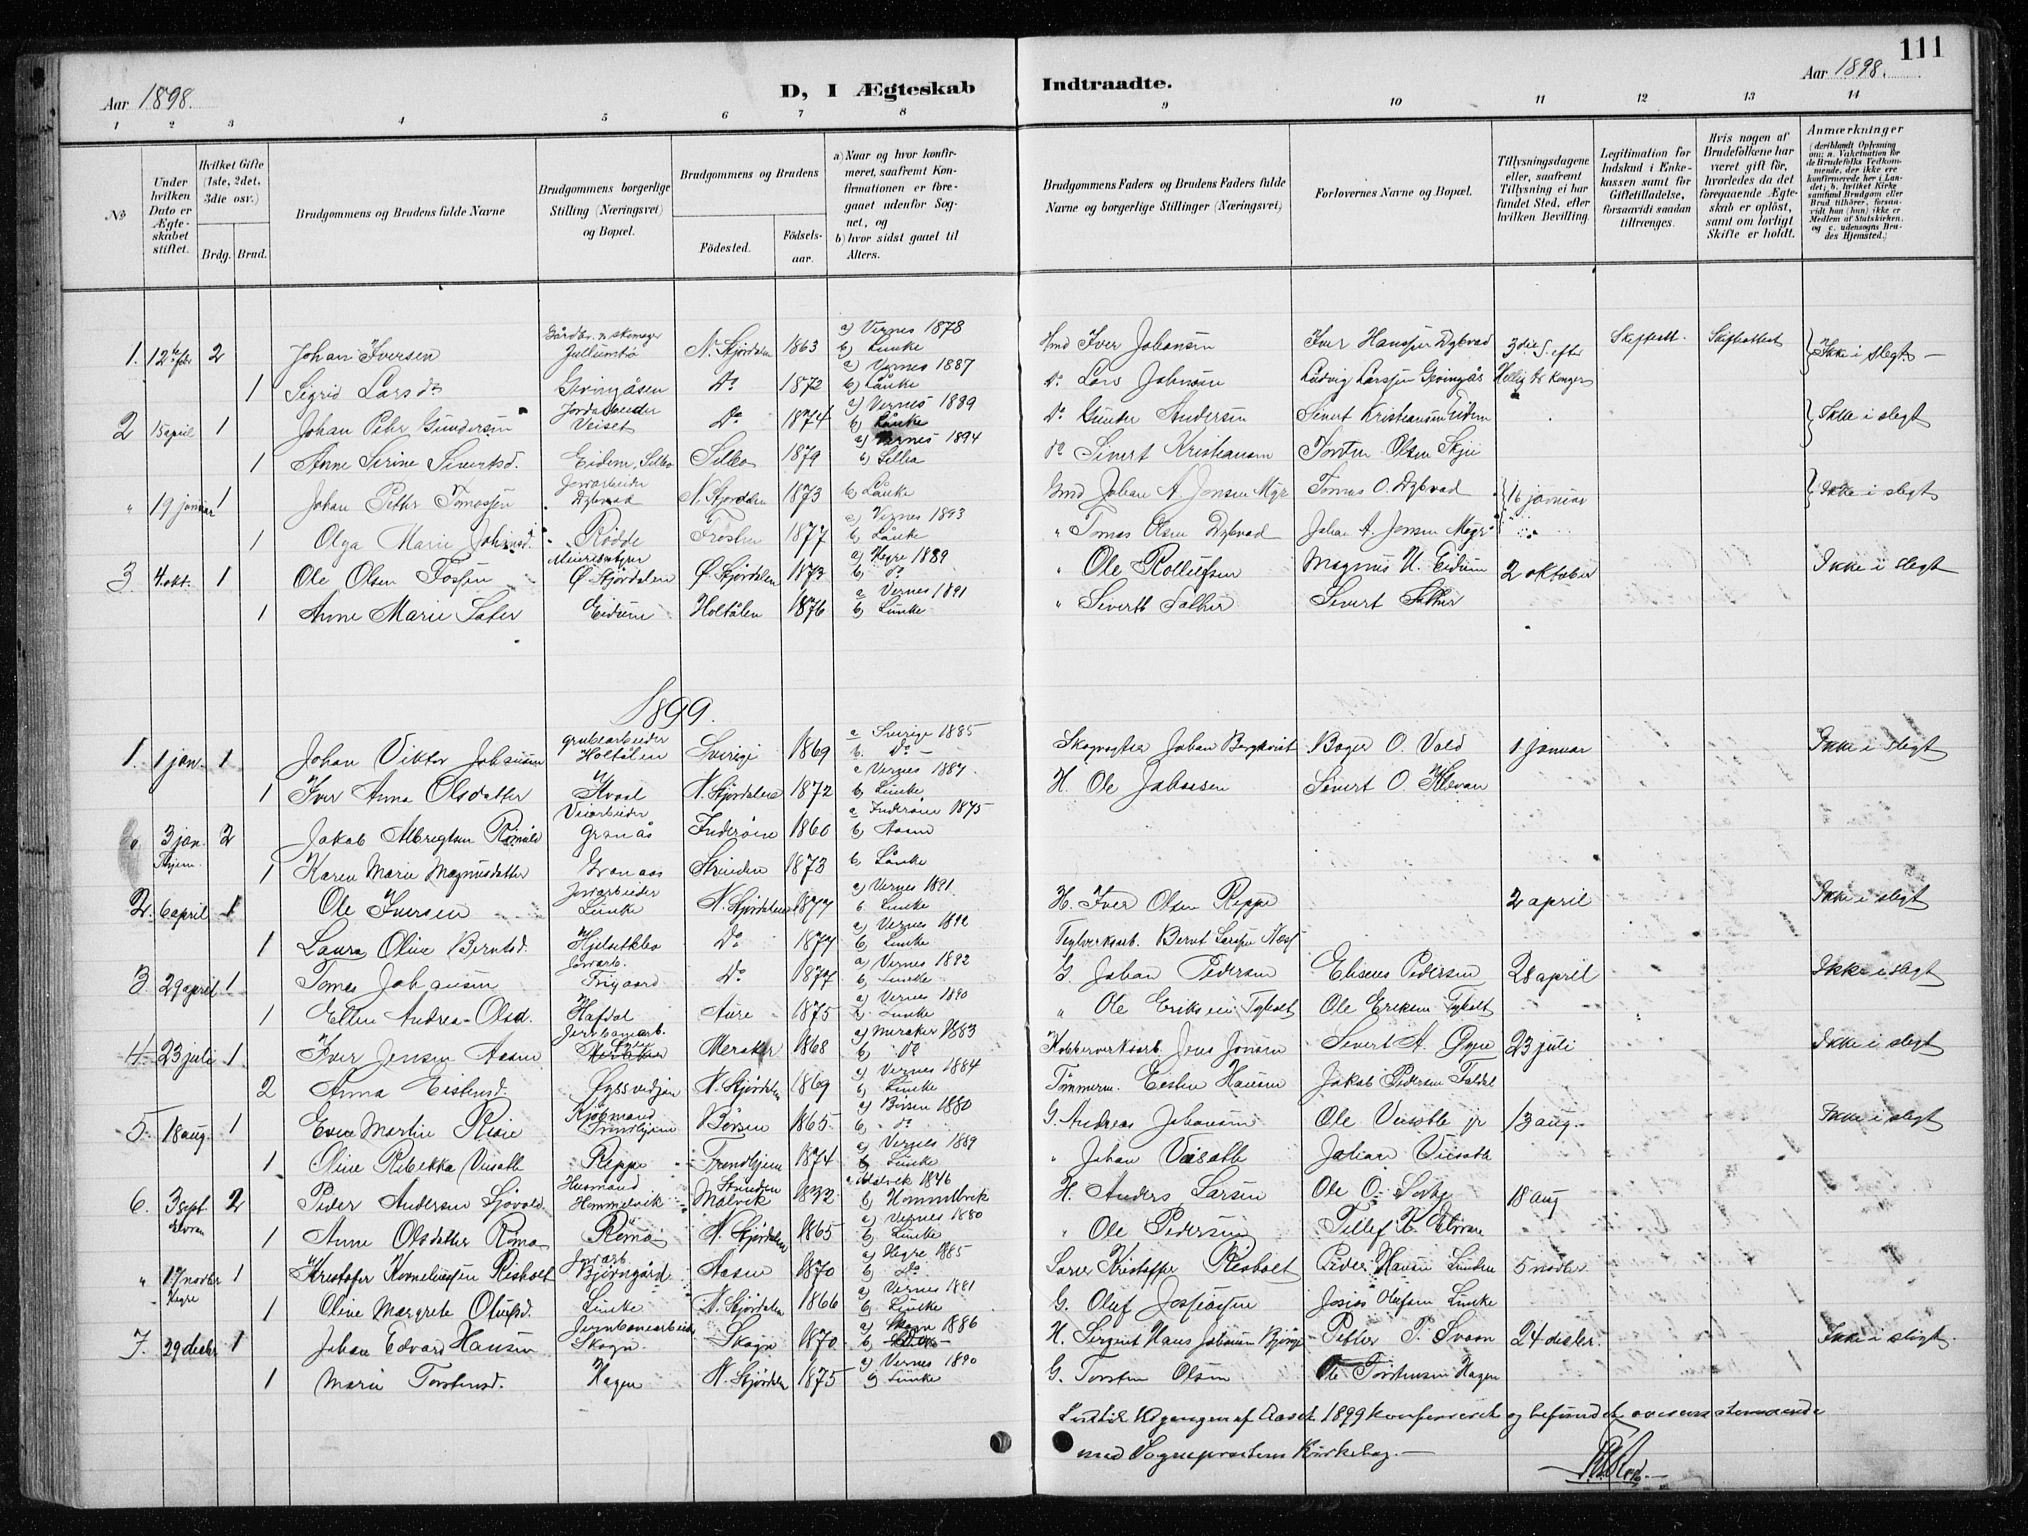 Aar 1898. D, I Ægteskab Indtraadte. Aar 1898. 111
1 2 3 4 5 6 7 8 9 10 11 12 13 14
№ Under hvilken Dato er Ægteskabet stiftet. Hvilket Gifte (1ste, 2det, 3die osv.) Brdg. Brud. Brudgommens og Brudens fulde Navne Brudgommens borgerlige Stilling (Næringsvei) og Bopæl. Brudgommens og Brudens Födested. Födselsaar. a) Naar og hvor konfirmeret, saafremt Konfirmationen er foregaaet udenfor Sognet, og b) hvor sidst gaaet til Alters. Brudgommens Faders og Brudens Faders fulde Navne og borgerlige Stillinger (Næringsvei) Forlovernes Navne og Bopæl. Tillysningsdagene eller, saafremt Tillysning ei har fundet Sted, efter hvilken Bevilling. Legitimation for Indskud i Enkekassen samt for Giftetilladelse, forsaavidt saadan tiltrænges. Hvis nogen af Brudefolkene har været gift för, hvorledes da det foregaaende Ægteskab er oplöst, samt om lovligt Skifte er holdt. Anmærkninger (deriblandt Oplysning om: a. Vakcination for de Brudefolks Vedkommende, der ikke ere konfirmerede her i Landet; b. hvilket Kirkesamfund Brudgom eller Brud tilhörer, forsaavidt han (hun) ikke er Medlem af Statskirken, og c. udensogns Brudes Hjemsted.)
1. 12te febr 2 Johan Iversen N. Stjördalen 1863 a) Vernes 1878 b) Lånke Gmd Iver Johansen Iver Hansen Dybvad 3die S. efter Skifteatt. Skifteattest Ikke i slegt
1 Sigrid Larsdr Gevingåsen Do 1872 a) Vernes 1887 b) Lånke Do Lars Johnsen Ludvig Larssen Gevingås Hellig tr Konger
2 15 april 1 Johan Peter Gundersen Jordarbeider Veiset Do 1874 a) Vernes 1889 b) Lånke Do Gunder Andersen Sivert Kristiansen Eidem Ikke i slegt
1 Anne Serine Sivertsd. Eidem, Selbo Selbo 1879 a) Vernes 1894 b) Selbu do Sivert Kristiansen Torsten Olsen
" 19 januar 1 Johan Petter Tomassen Jordarbeider Dybvad N. Stjordalen 1873 b) Lånke Gmd Johan A Jensen Tomas O. Dybvad 16 januar Ikke i slegt
1 Olga Marie Johansd. Rödde 1877 a) Vernes 1893 b) Lånke " Tomas Olsen Dybvad Johan A. Jensen
3. 4 okt. 1 Ole Olsen Fossen Ö Stjördalen Ö. Stjördalen 1873 a) Hegre 1889 b) do " Ole Rollefsen Magnus H. Eidum 2 oktober Ikke i slegt
1 Anne Marie Sater Eidum Holtålen 1876 a Vernes 1891 b) Lånke " Sivert Sather Sivert Sather
1899.
1. 1 jan. 1 Johan Viktor Johansen grubearbeider Holtålen Sverige 1869 a Sverige 1885 b. Do Skogvogter Johan Bergkvist O. Vold 1 januar Ikke i slegt
1 Iver Anna Olsdatter Kvål N. Stjördalen 1872 a Vernes 1887. b) Lånke H. Ole Johnsen Sivert O. Kleven
" 3 jan. 2 Jakob Albregtsen Granås Inderöen 1860 a Inderöen 1875 b) Åsen
1 Karen Marie Magnusdatter Granaas Strinden 1873 b) Lånke
2. 6 april 1 Ole Iversen Jordarbeider Lånke N. Stjördalen 1877 a) Vernes 1891. b Lånke H. Iver Olsen Reppe 2 april Ikke i slegt
1 Laura Oline Berntsd. Hjelsetkleo Do 1877 a) Vernes 1892 b) Lånke Teglverksarb. Bernt Larssen
3. 29 april 1 Tomas Johansen Jordarb. Do 1877 a) Vernes 1892 b. Lånke G. Johan Pedersen Eliseus Pedersen 28 april Ikke i slegt
1 Ellen Andrea Olsd. Hafdal Aure 1875 a) Vernes 1890 b. Lånke " Ole Eriksen Ole Eriksen
4. 23 juli 1 Iver Jensen Aasen Jernbanearb. Meraker 1868 a) Meraker 1883 b) do Kobberverksarb. Jens Jonsen Sivert A. 23 juli Ikke i slegt
2 Anna Eistensd. N. Stjördalen 1869 a) Vernes 1884 b) Lånke Tömmerm. Eisten Hansen Jakob Pedersen
5. 18 aug. 1 Even Martin Risie Kjöbmand Trondhjem Börsen 1865 a) Börsen 1880 b, do G. Andreas Johansen Ole Veisetb jr 13 aug. Ikke i slegt
1 Oline Rebekka Reppe Trondhjem 1874 a) Vernes 1889 b) Lånke " Johan Johan
6. 3 sept. 2 Peder Andersen Sjövold Husmand Hommelvik Strinden Malvik 1832 a Malvik 1846 b) Hommelvik H. Anders Larsen Ole O. 18 aug
1 Anne Olsdatter Romo Römo N. Stjördalen 1865 a) Vernes 1880 b) Lånke " Ole Pedersen Tellef
" 17 novbr Hegre 1 Kristofer Korneliussen Risholt Jordarb. Björngård Aasen 1870 a) Hegre 1885 b. do Kristoffer Risholt Peder Hansen 5 novbr
1 Oline Margrete Olufsd. Lånke N. Stjördalen 1866 a) Vernes 1881 b) Lånke G. Oluf Josiassen Josias Olufsen Lånke
7. 29 decbr 1 Johan Edvard Hansen Jernbanearbeider Skogn. Skogn 1870 a) Skogn 1886 b) H. Sergent Hans Johansen Petter P. Svaan 24 decbr. Ikke i slegt.
1 Marie Torstensd. Hagen N. Stjördalen 1875 a) Vernes 1890 b) Lånke G. Torsten Olsen Ole Torstensen Hagen
Indtil Udgangen af Aaret 1899 konfereret og befundet overensstemmende
med Sognepræstens Kirkebog.